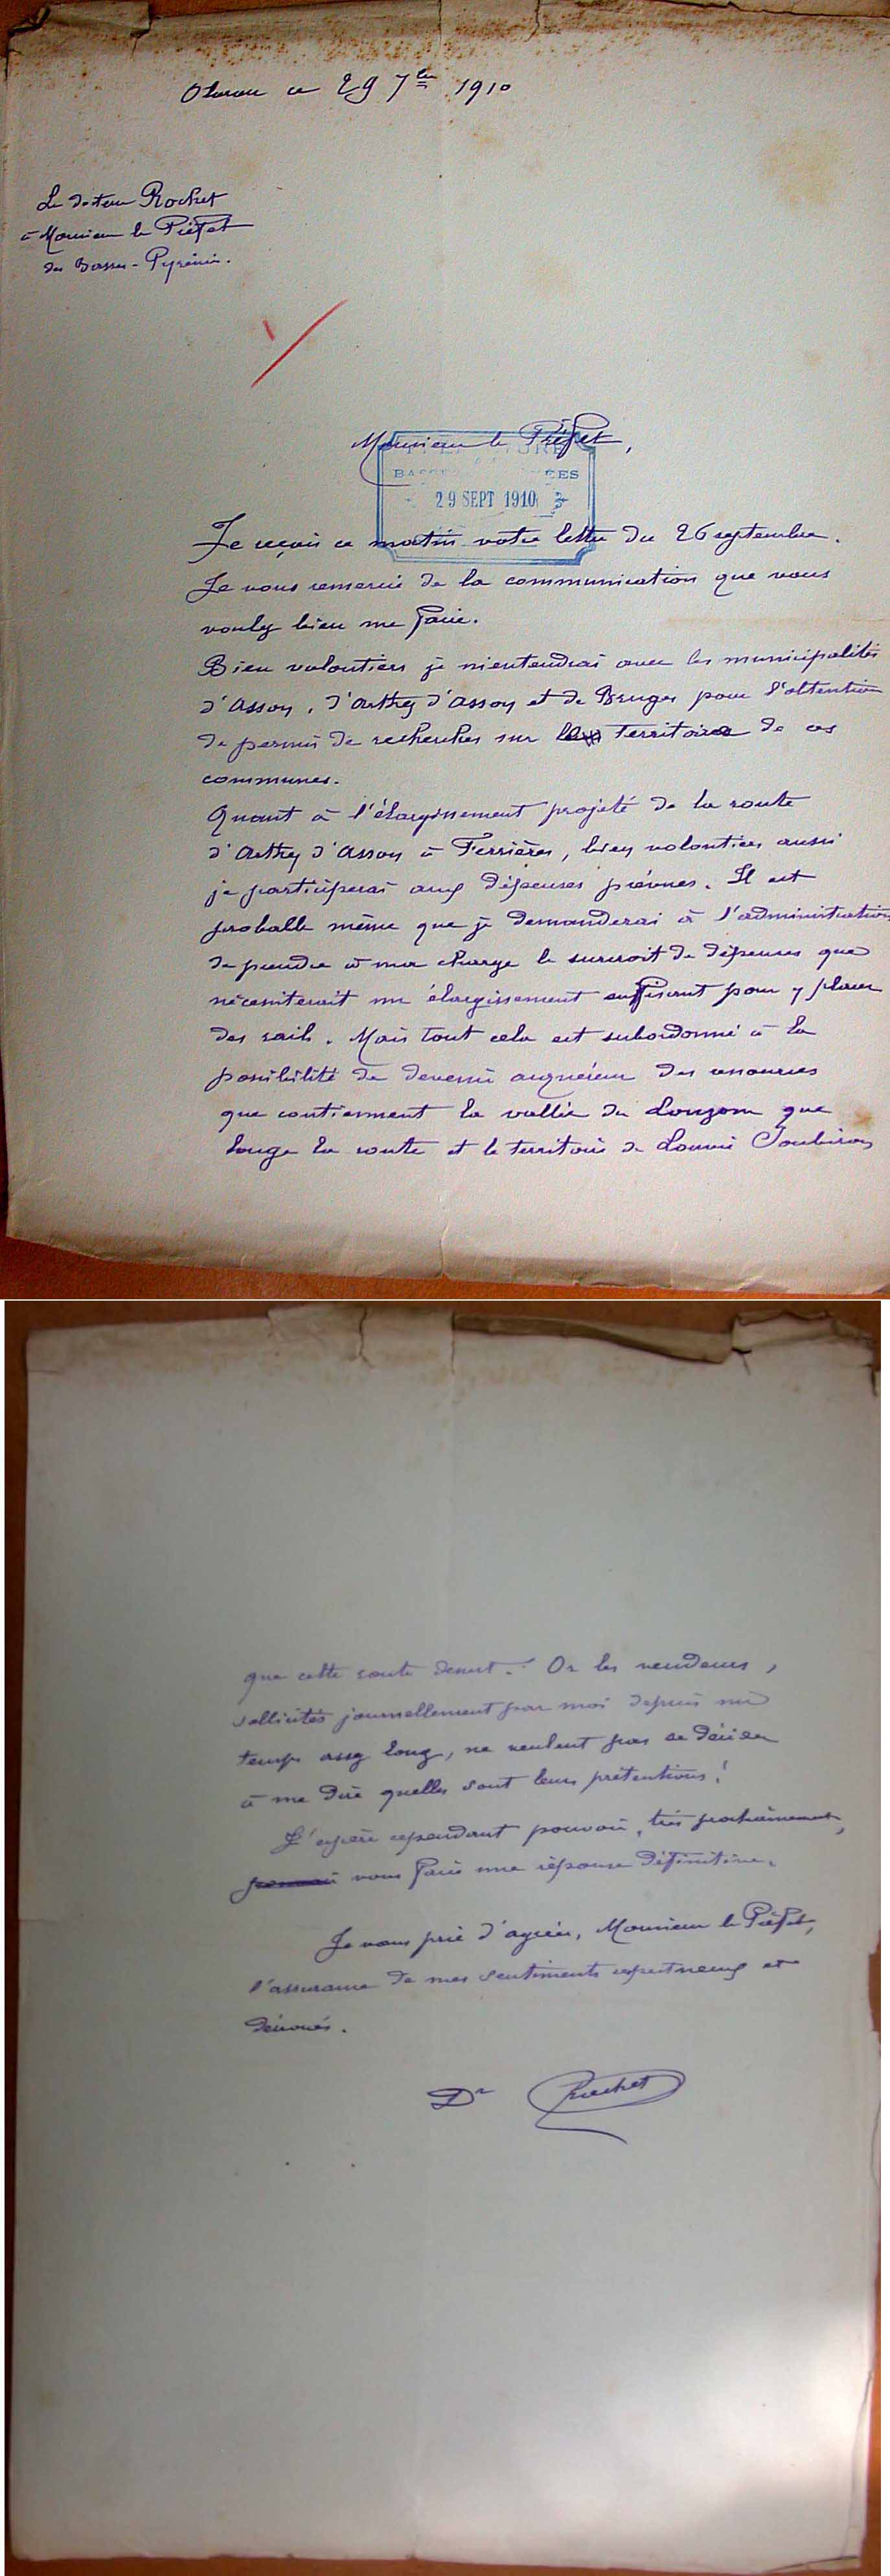 Oloron ce 29 7bre 1910
Le docteur Rochet
à Monsieur le Préfet
des Basses-Pyrénées.
Monsieur le Préfet,
BASSES PYRÉNÉES
29 SEPT 1910
Je reçois ce matin votre lettre du 26 septembre.
Je vous remercie de la communication que vous
voulez bien me faire.
Bien volontiers je m'entendrai avec les municipalités
d'Asson, d'Arthez d'Asson et de Bruges pour l'obtention
de permis de recherches sur le territoire de ces
communes.
Quant à l'élargissement projeté de la route
d'Arthez d'Asson à Ferrières, bien volontiers aussi
je participerai aux dépenses prévues. Il est
probable même que je demanderai à l'administration
de prendre à ma charge le surcroit de dépenses que
nécessiterait un élargissement suffisant pour y placer
des rails. Mais tout cela est subordonné à la
possibilité de devenir acquéreur des ressources
que contiennent la vallée de Louzom que
longe la route et le territoire de Louvie Soubiron
que cette route dessert. Or les vendeurs,
sollicités journellement par moi depuis un
temps assez long, ne veulent pas se décider
à me dire quelles sont leurs prétentions!
J'espère cependant pouvoir, très prochainement,
vous faire une réponse définitive.
Je vous prie d'agréer, Monsieur le Préfet,
l'assurance de mes sentiments respectueux et
dévoués.
Dr Rochet